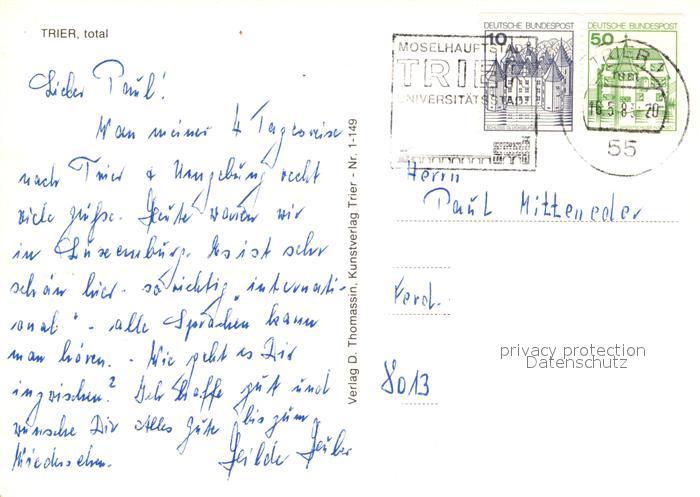 TRIER, total
Lieber Paul!
Von meiner 4 Tagesreise
nach Trier & Umgebung recht
viele Grüße. Heute waren wir
in Luxemburg. Es ist sehr
schön hier - so richtig "internati-
onal" - alle Sprachen kann
man hören. - Wie geht es Dir
inzwischen? Ich hoffe gut und
wünsche Dir alles Gute bis zum
Wiedersehen.
Verlag D. Thomassin, Kunstverlag Trier - Nr. 1-149
MOSELHAUPTSTADT
TRIER
UNIVERSITÄTSSTADT
DEUTSCHE BUNDESPOST
10
DEUTSCHE BUNDESPOST
50
TRIER 1
55
Herrn
Paul Mitteneder
Ferd.
privacy protection
Datenschutz
8013